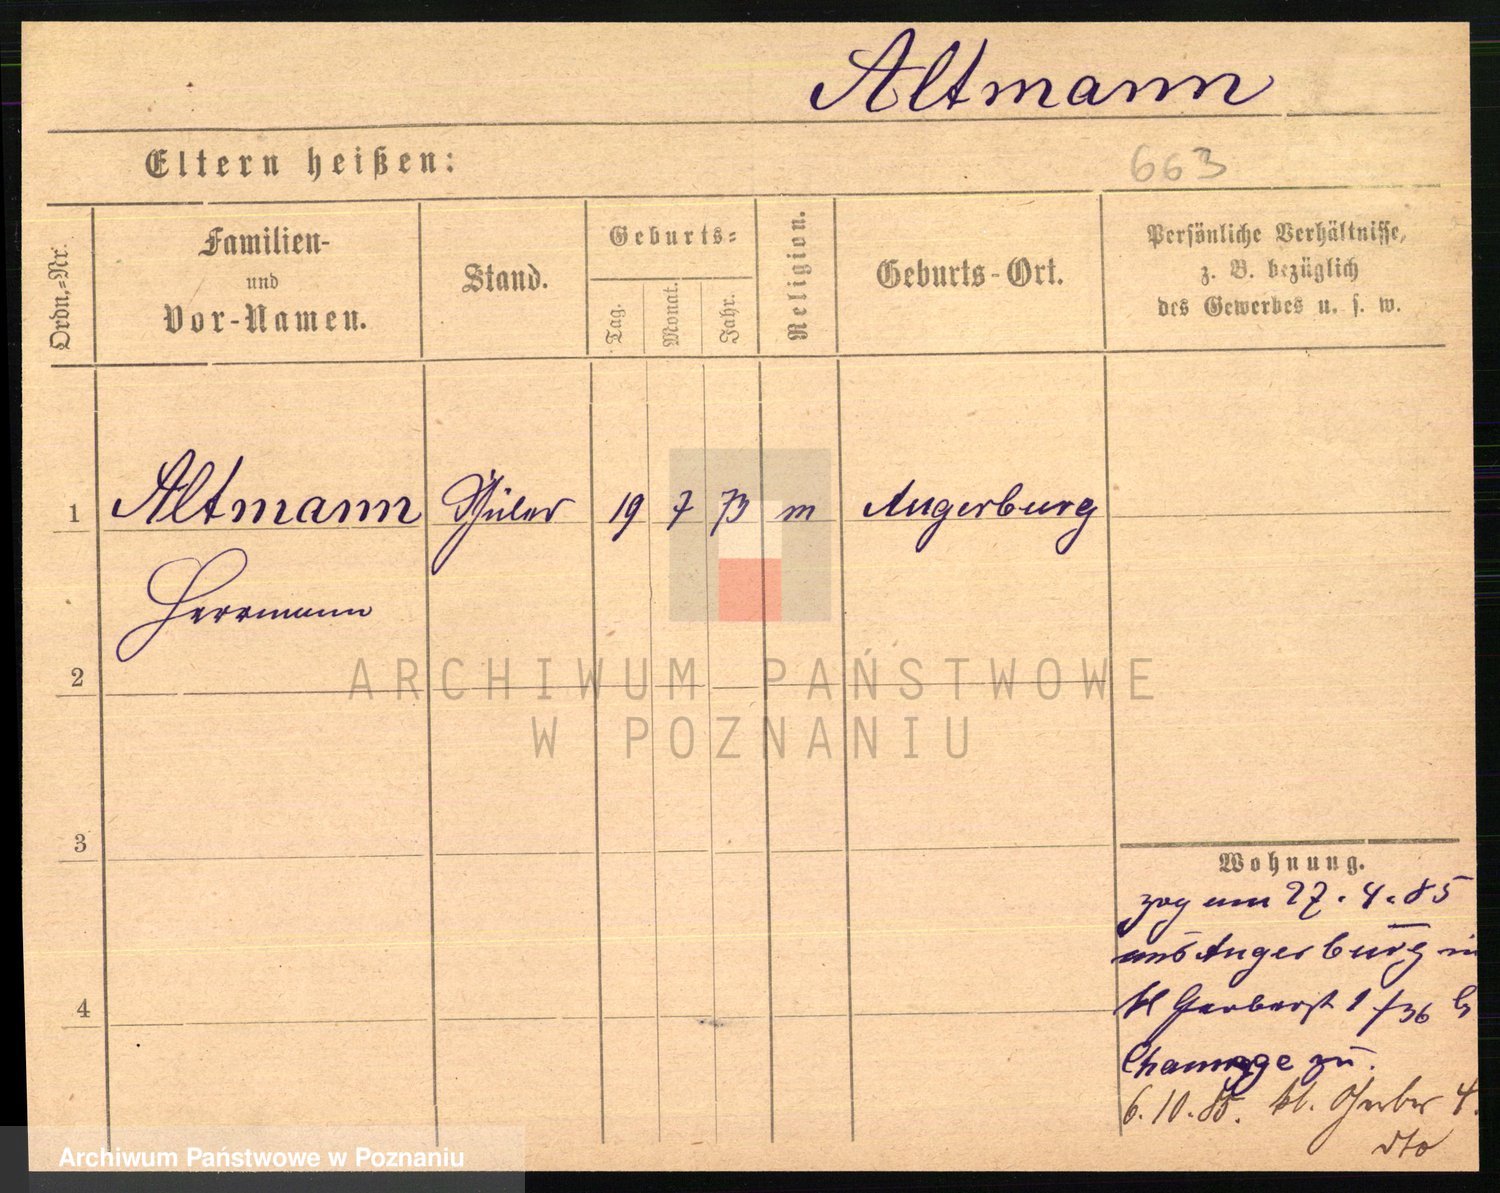 Altmann
Eltern heißen:
663
Ordn.-Nr.
Familien-
und
Vor-Namen.
Stand.
Geburts-
Tag.
Monat.
Jahr.
Religion.
Geburts-Ort.
Persönliche Verhältnisse,
z. B. bezüglich
des Gewerbes u. s. w.
1 Altmann Schüler 19 7 73 m Angerburg
Herrmann
2
3
4
Wohnung.
zog am 27.4.85
aus Angerburg in
kl Gerberst 1 /36 b
zu.
6.10.85. kl. Gerber 4.
dto
ARCHIWUM PAŃSTWOWE
W POZNANIU
Archiwum Państwowe w Poznaniu